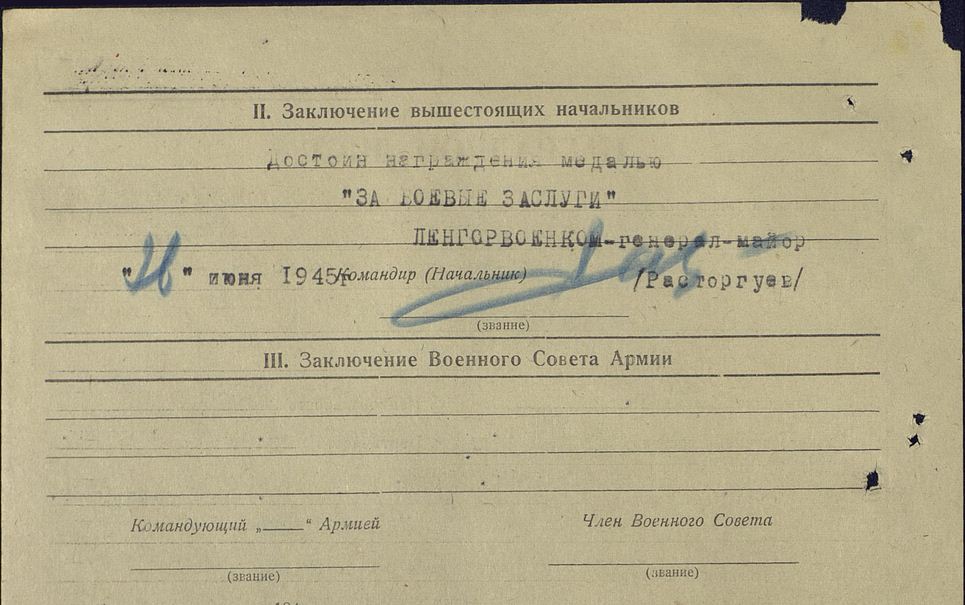 II. Заключение вышестоящих начальников
достоин награждения медалью
"ЗА БОЕВЫЕ ЗАСЛУГИ"
ЛЕНГОРВОЕНКОМ-генерал-майор
"26" июня 1945г Командир (Начальник) /Расторгуев/
(звание)
III. Заключение Военного Совета Армии
Командующий „ “ Армией Член Военного Совета
(звание) (звание)